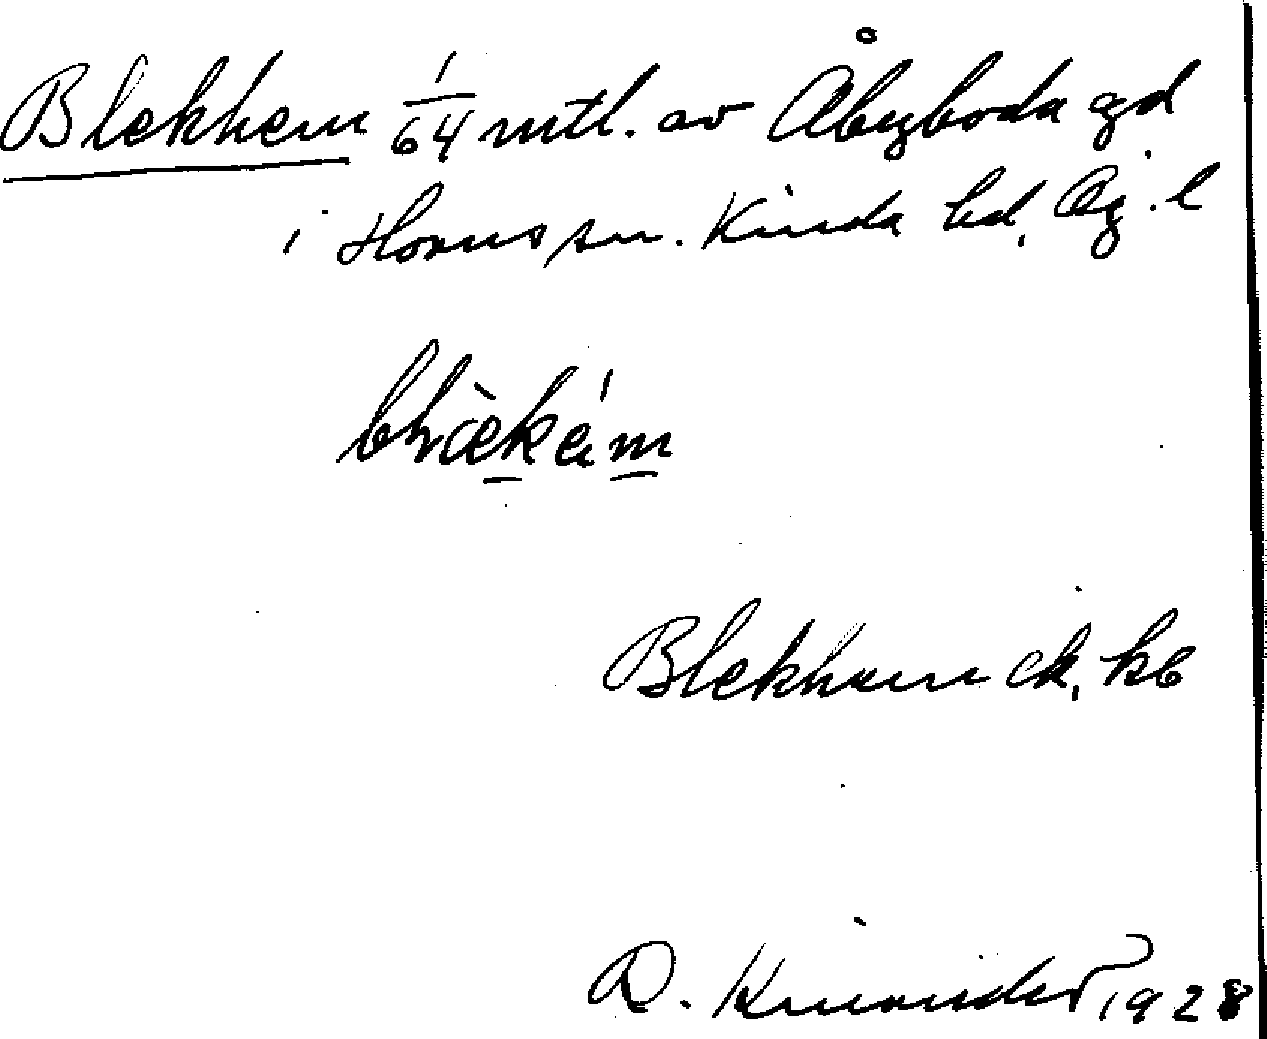 Blekhem 1/64 mtl. av Åbyboda gd
i Horns sn. Kinda hd. Ög. l
Blekhem ek. kb
R. Kinander 1928